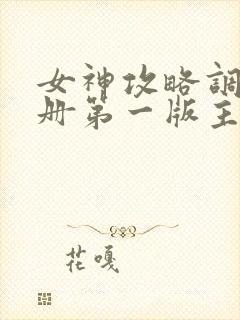 女神攻略調
册第一版主
花嘎